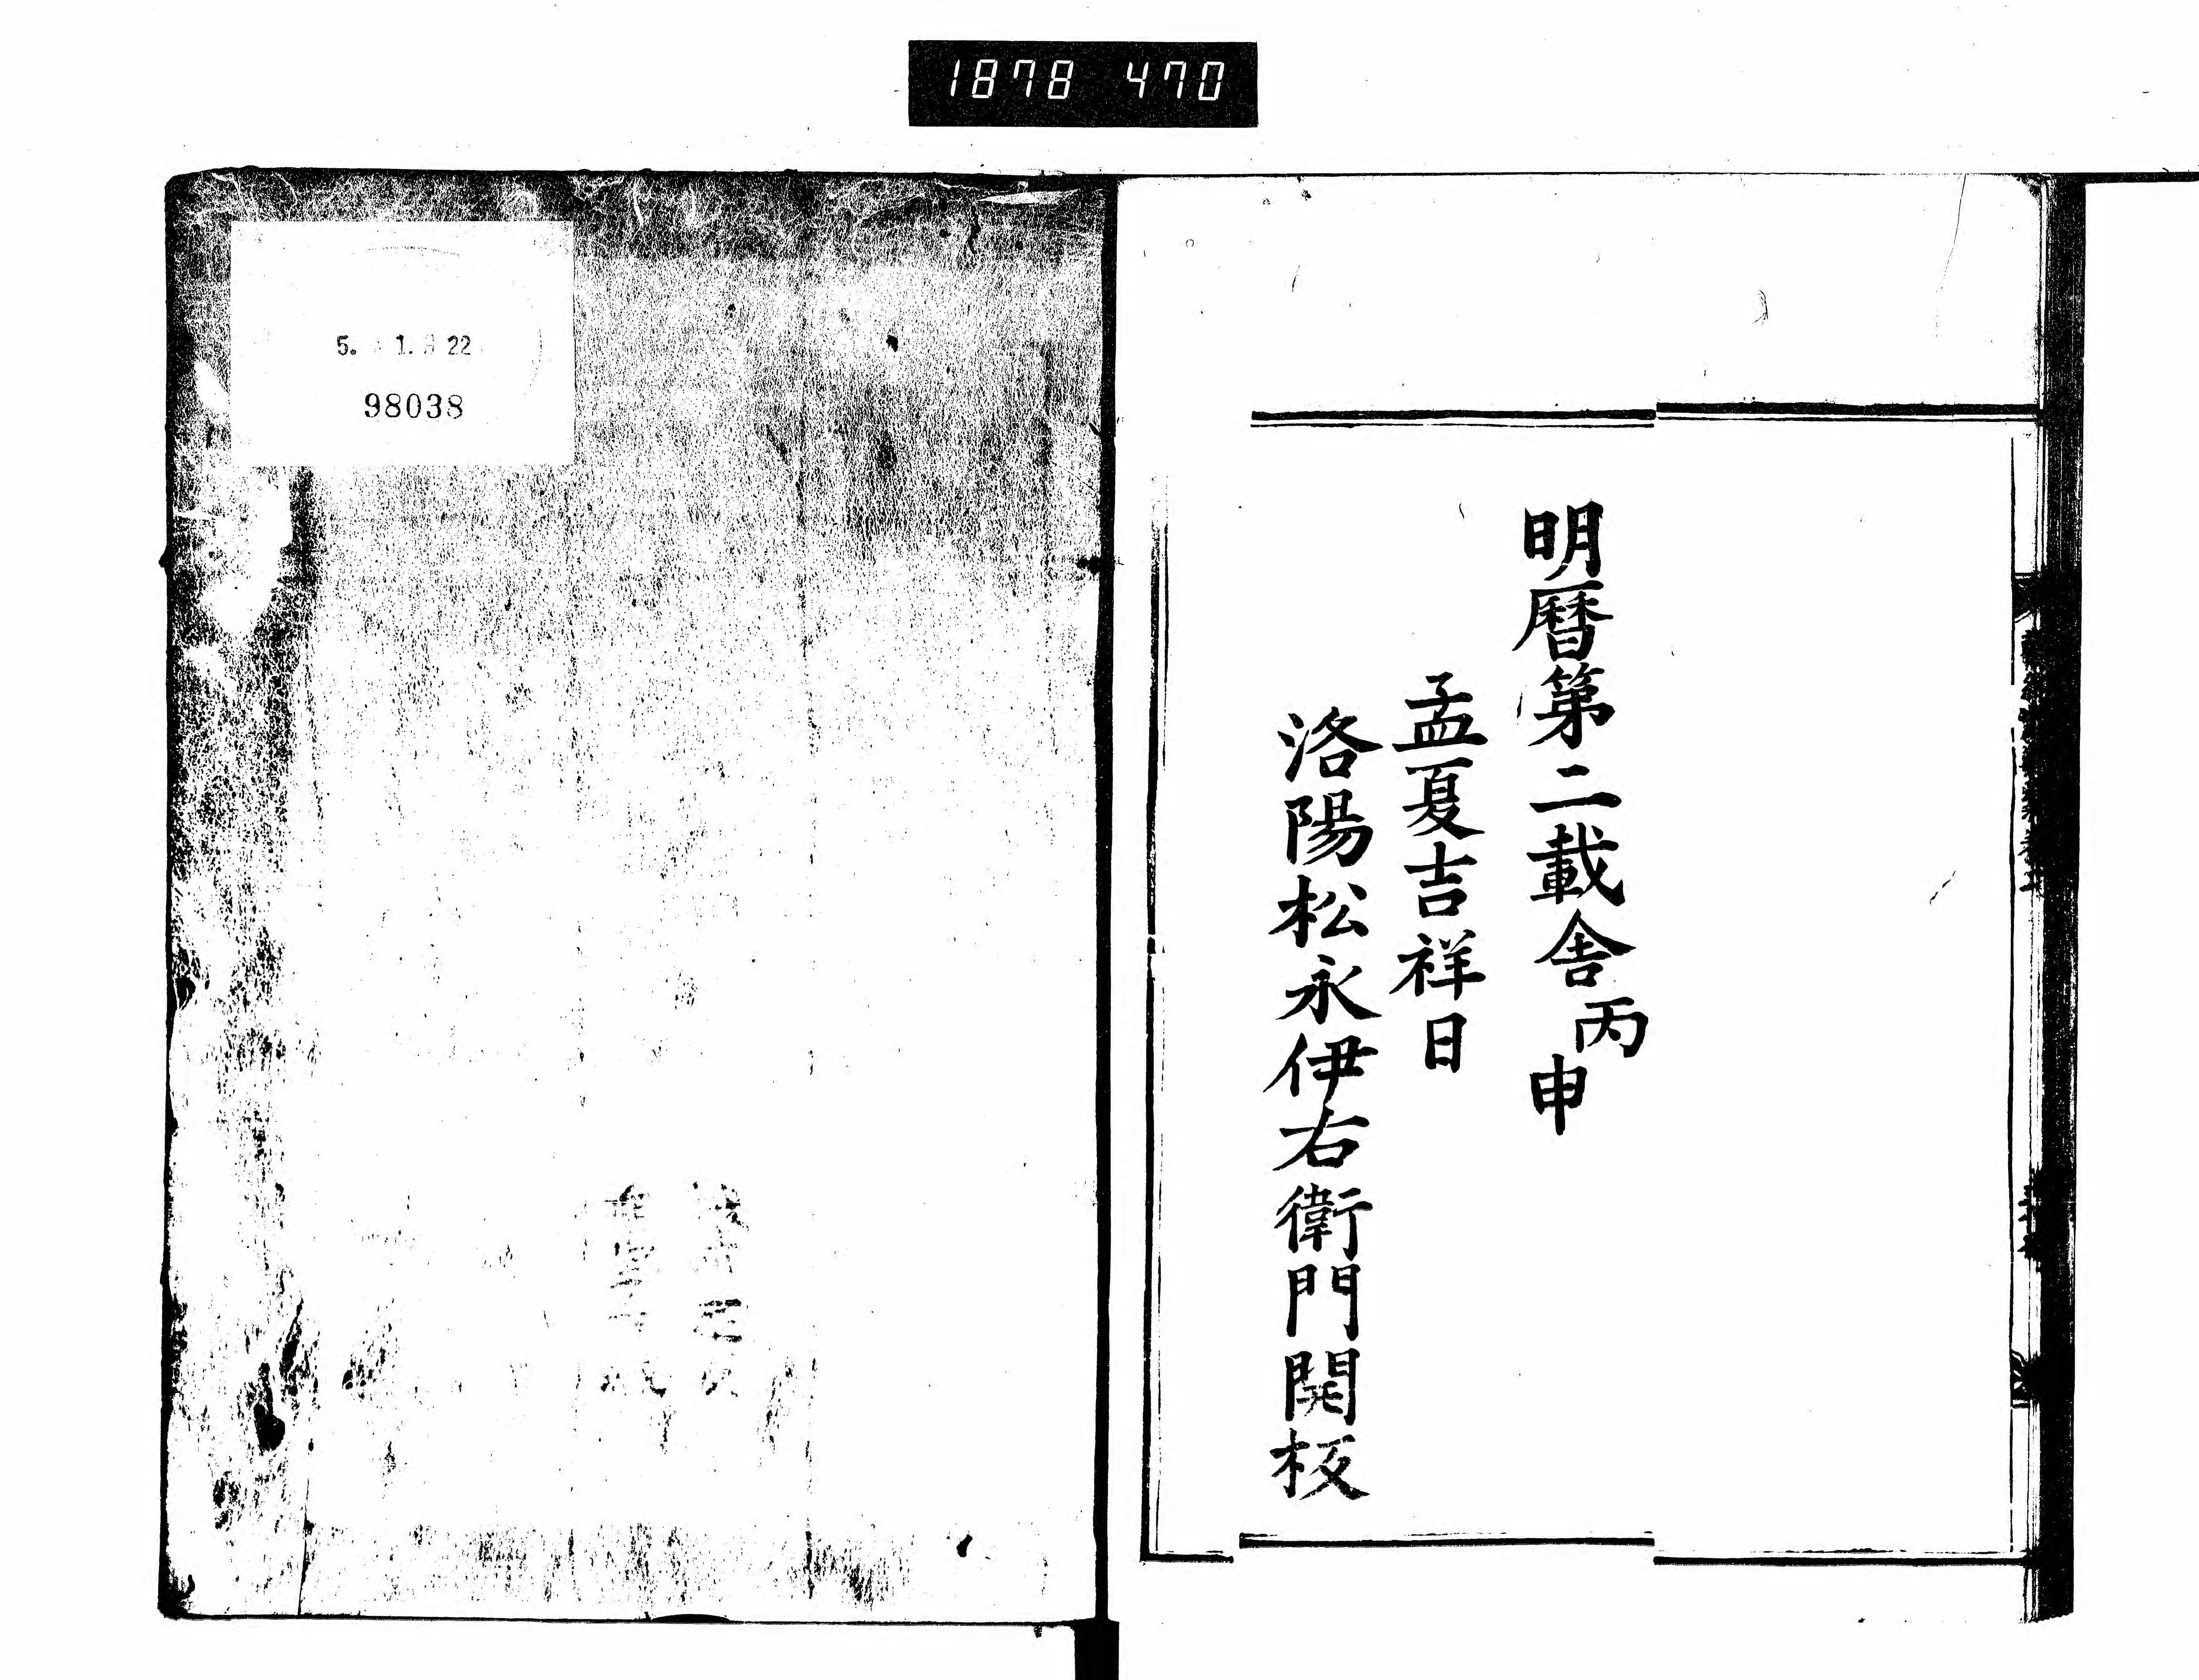 1878 470
明曆第二載舍丙申
孟夏吉祥日
洛陽松永伊右衛門開板
5. 1. 22
98038